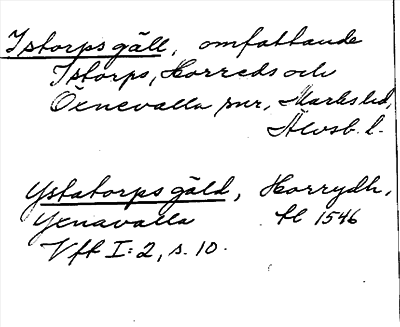 Istorps gäll, omfattande
Istorps, Horreds och
Öxnevalla snr, Marks hd,
Älvsb. l.
Ystatorps gäld, Horrydh,
Yxnavalla tl 1546
Vft I: 2, s. 10.